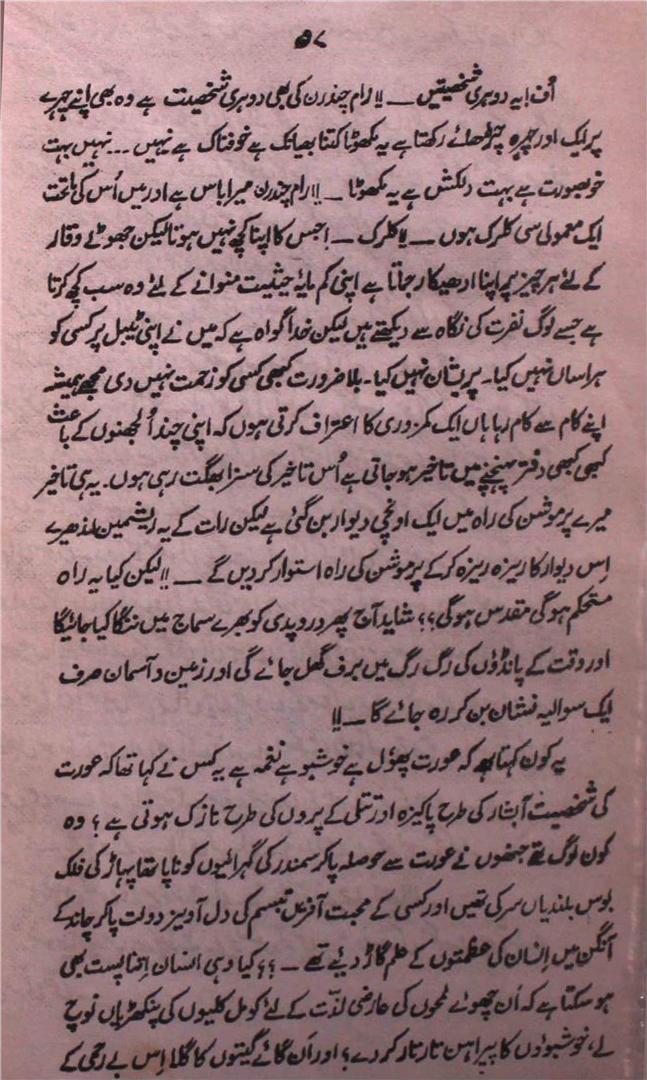 ۵۷
اُف! یہ دوہری شخصیتیں ـــ !! رام چندرن کی بھی دوہری شخصیت ہے وہ بھی اپنے چہرے
پر ایک اور چہرہ چڑھائے رکھتا ہے یہ مکھوٹا کتنا بھیانک ہے خوفناک ہے نہیں ... نہیں بہت
خوبصورت ہے بہت دلکش ہے یہ مکھوٹا ـــ !! رام چندرن میرا باس ہے اور میں اُس کی ماتحت
ایک معمولی سی کلرک ہوں ـــ !! کلرک ـــ ! جس کا اپنا کچھ نہیں ہوتا لیکن جھوٹے وقار
کے لئے ہر چیز پہ اپنا ادھیکار جتاتا ہے اپنی کم مایۂ حیثیت منوانے کے لئے وہ سب کچھ کرتا
ہے جسے لوگ نفرت کی نگاہ سے دیکھتے ہیں لیکن خدا گواہ ہے کہ میں نے اپنی ٹیبل پر کسی کو
ہراساں نہیں کیا۔ پریشان نہیں کیا۔ بلا ضرورت کبھی کسی کو زحمت نہیں دی مجھے ہمیشہ
اپنے کام سے کام رہا ہاں ایک کمزوری کا اعتراف کرتی ہوں کہ اپنی چند اُلجھنوں کے باعث
کبھی کبھی دفتر پہنچنے میں تاخیر ہو جاتی ہے اُس تاخیر کی سزا بھگت رہی ہوں۔ یہ ہی تاخیر
میرے پرموشن کی راہ میں ایک اونچی دیوار بن گئی ہے لیکن رات کے یہ ریشمین اندھیرے
اِس دیوار کا ریزہ ریزہ کر کے پرموشن کی راہ استوار کر دیں گے ـــ !! لیکن کیا یہ راہ
مستحکم ہوگی مقدس ہوگی؟؟ شاید آج پھر دروپدی کو بھرے سماج میں ننگا کیا جائیگا
اور وقت کے پانڈوُں کی رگ رگ میں برف گھل جائے گی اور زمین و آسمان صرف
ایک سوالیہ نشان بن کر رہ جائے گا ـــ !!
یہ کون کہتا ہے کہ عورت پھوُل ہے خوشبو ہے نغمہ ہے یہ کس نے کہا تھا کہ عورت
کی شخصیت آبشار کی طرح پاکیزہ اور تتلی کے پروں کی طرح نازک ہوتی ہے؟ وہ
کون لوگ تھے جنھوں نے عورت سے حوصلہ پا کر سمندر کی گہرائیوں کو ناپا تھا پہاڑ کی فلک
بوس بلندیاں سر کی تھیں اور کسی کے محبت آفریں تبسم کی دل آویز دولت پا کر چاند کے
آنگن میں اِنسان کی عظمتوں کے علم گاڑ دیئے تھے ـــ ؟؟ کیا وہی انسان اِتنا پست بھی
ہو سکتا ہے کہ اُن چھوٹے لمحوں کی عارضی لذّت کے لئے کومل کلیوں کی پنکھڑیاں نوچ
لے، خوشبوؤں کا پیراہن تار تار کر دے؟ اور اَن گائے گیتوں کا گلا اِس بے رحمی کے